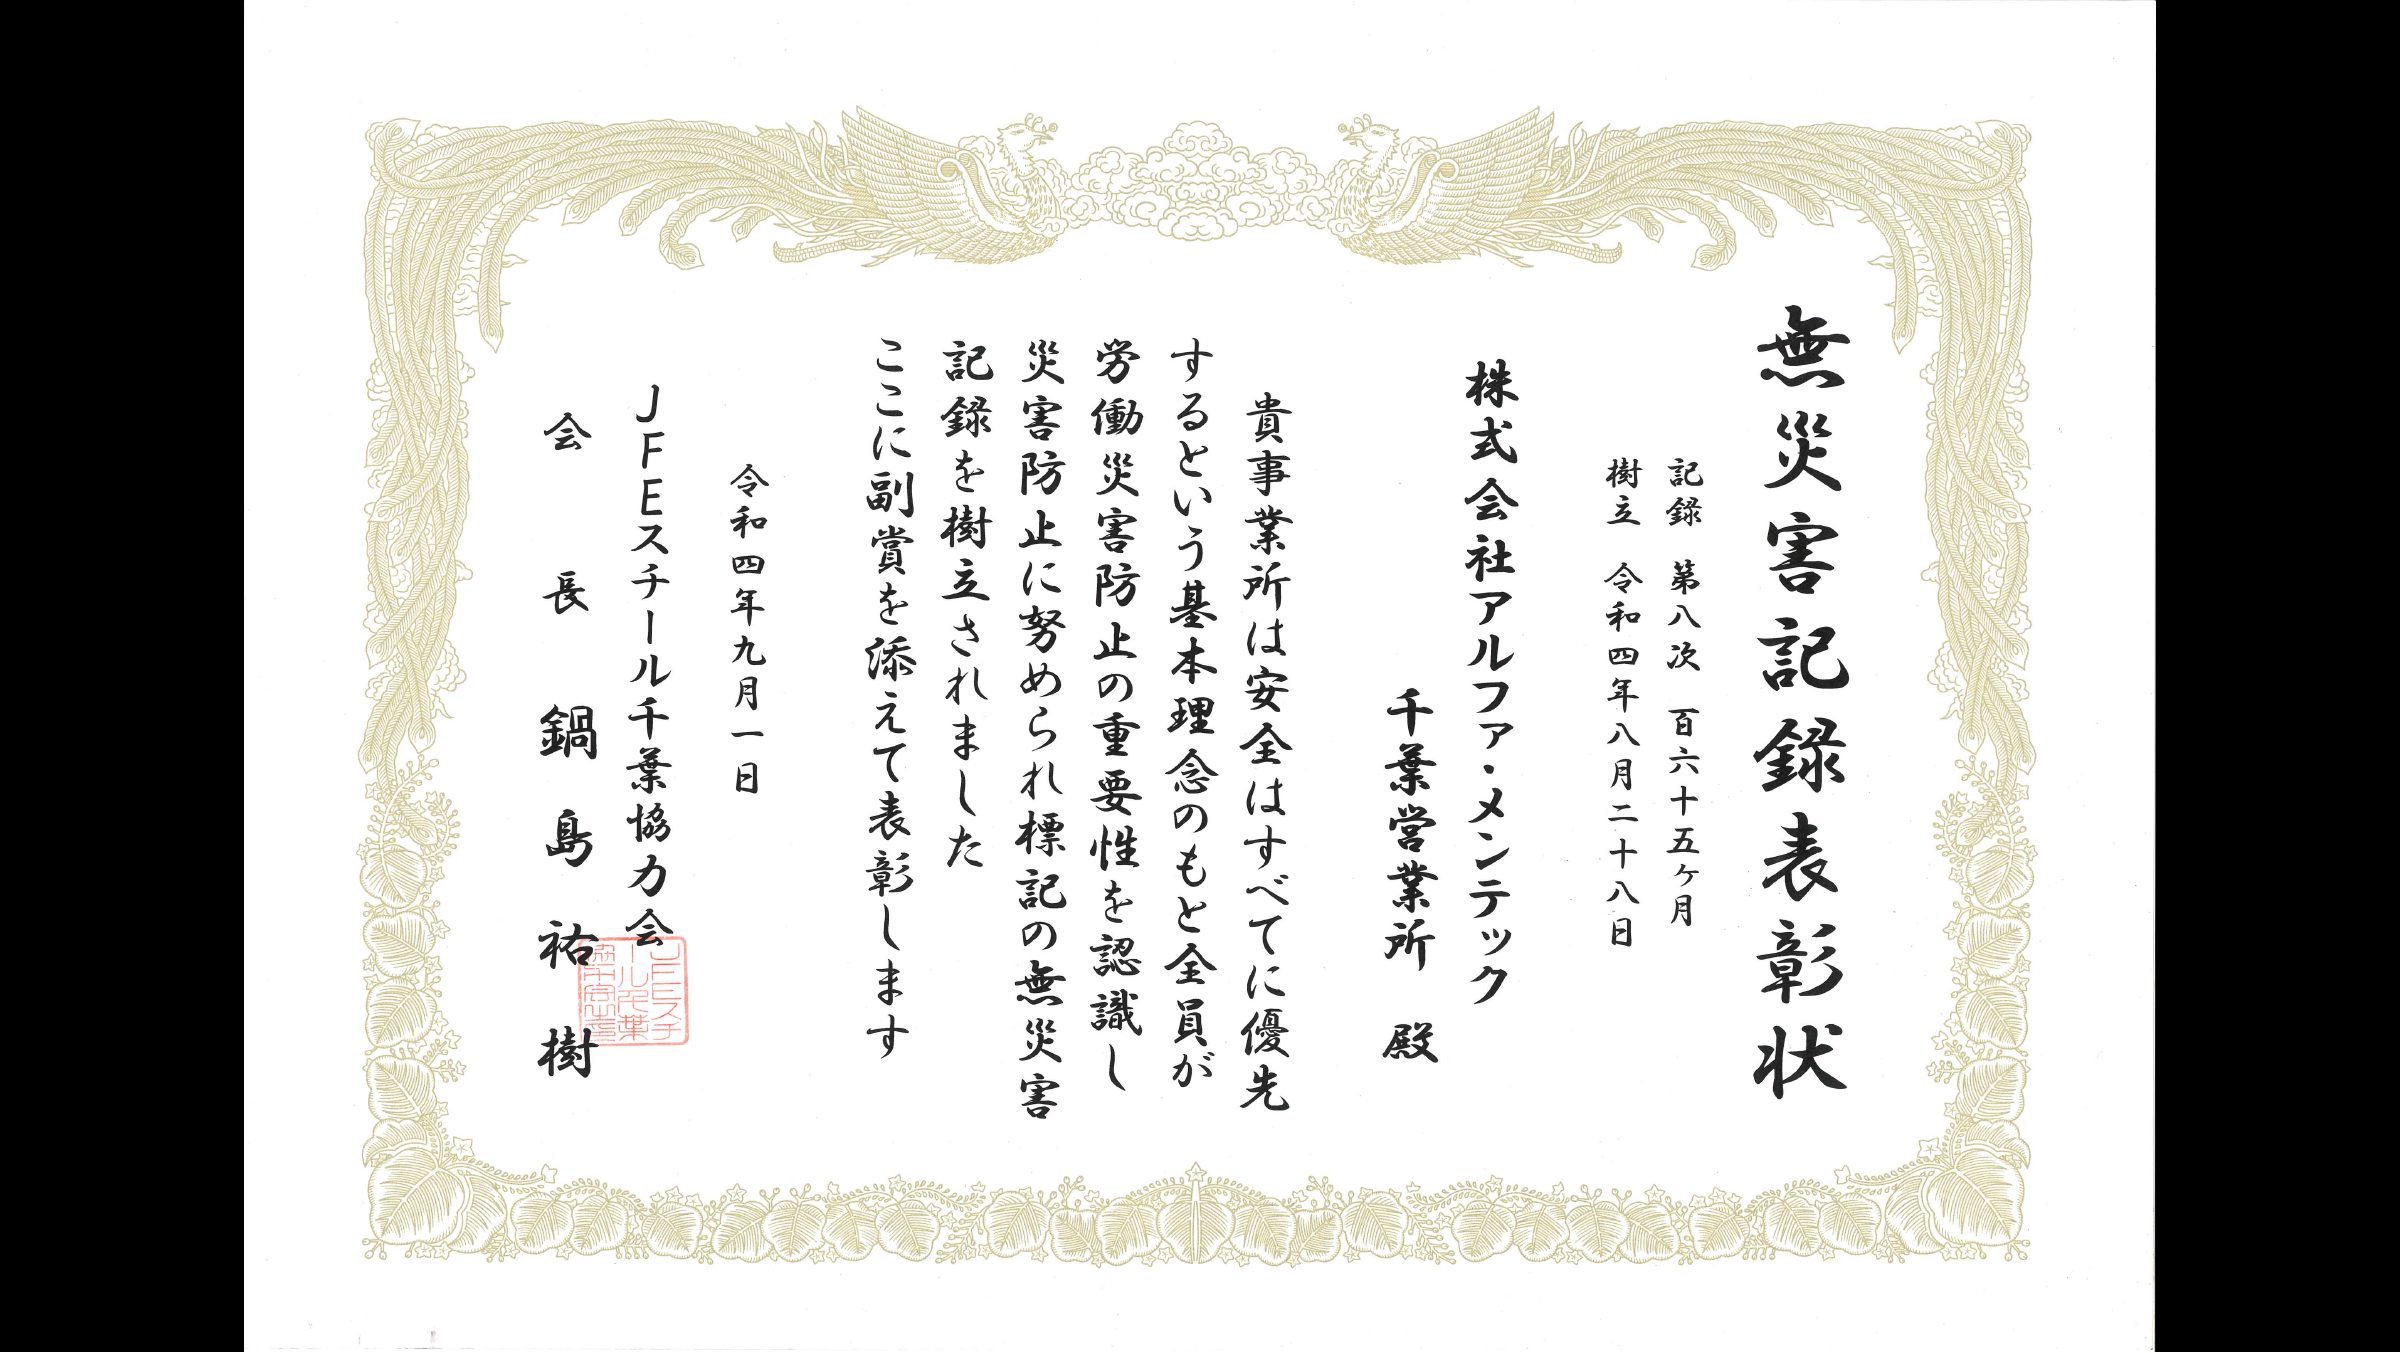 無災害記録表彰状
記録 第八次 百六十五ヶ月
樹立 令和四年八月二十八日
株式会社アルファ・メンテック
千葉営業所 殿
貴事業所は安全はすべてに優先
するという基本理念のもと全員が
労働災害防止の重要性を認識し
災害防止に努められ標記の無災害
記録を樹立されました
ここに副賞を添えて表彰します
令和四年九月一日
JFEスチール千葉協力会
会長 鍋島祐樹